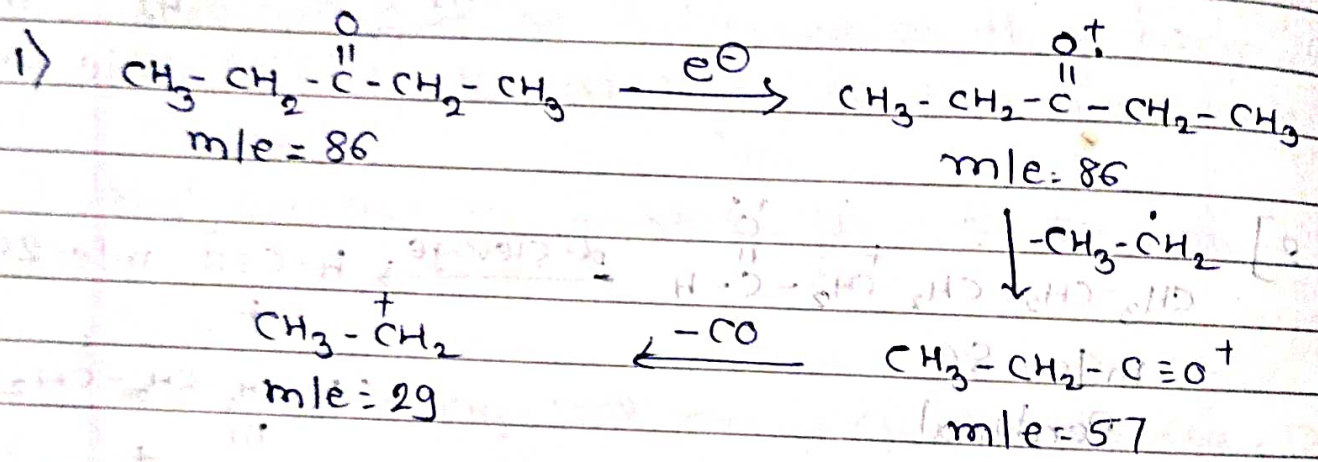 O O+.
|| ||
1) CH3-CH2-C-CH2-CH3 e⊖→ CH3-CH2-C-CH2-CH3
m/e = 86 m/e = 86
↓ -CH3-ĊH2
CH3-C+H2 ← -CO CH3-CH2-C≡O+
m/e = 29 m/e = 57